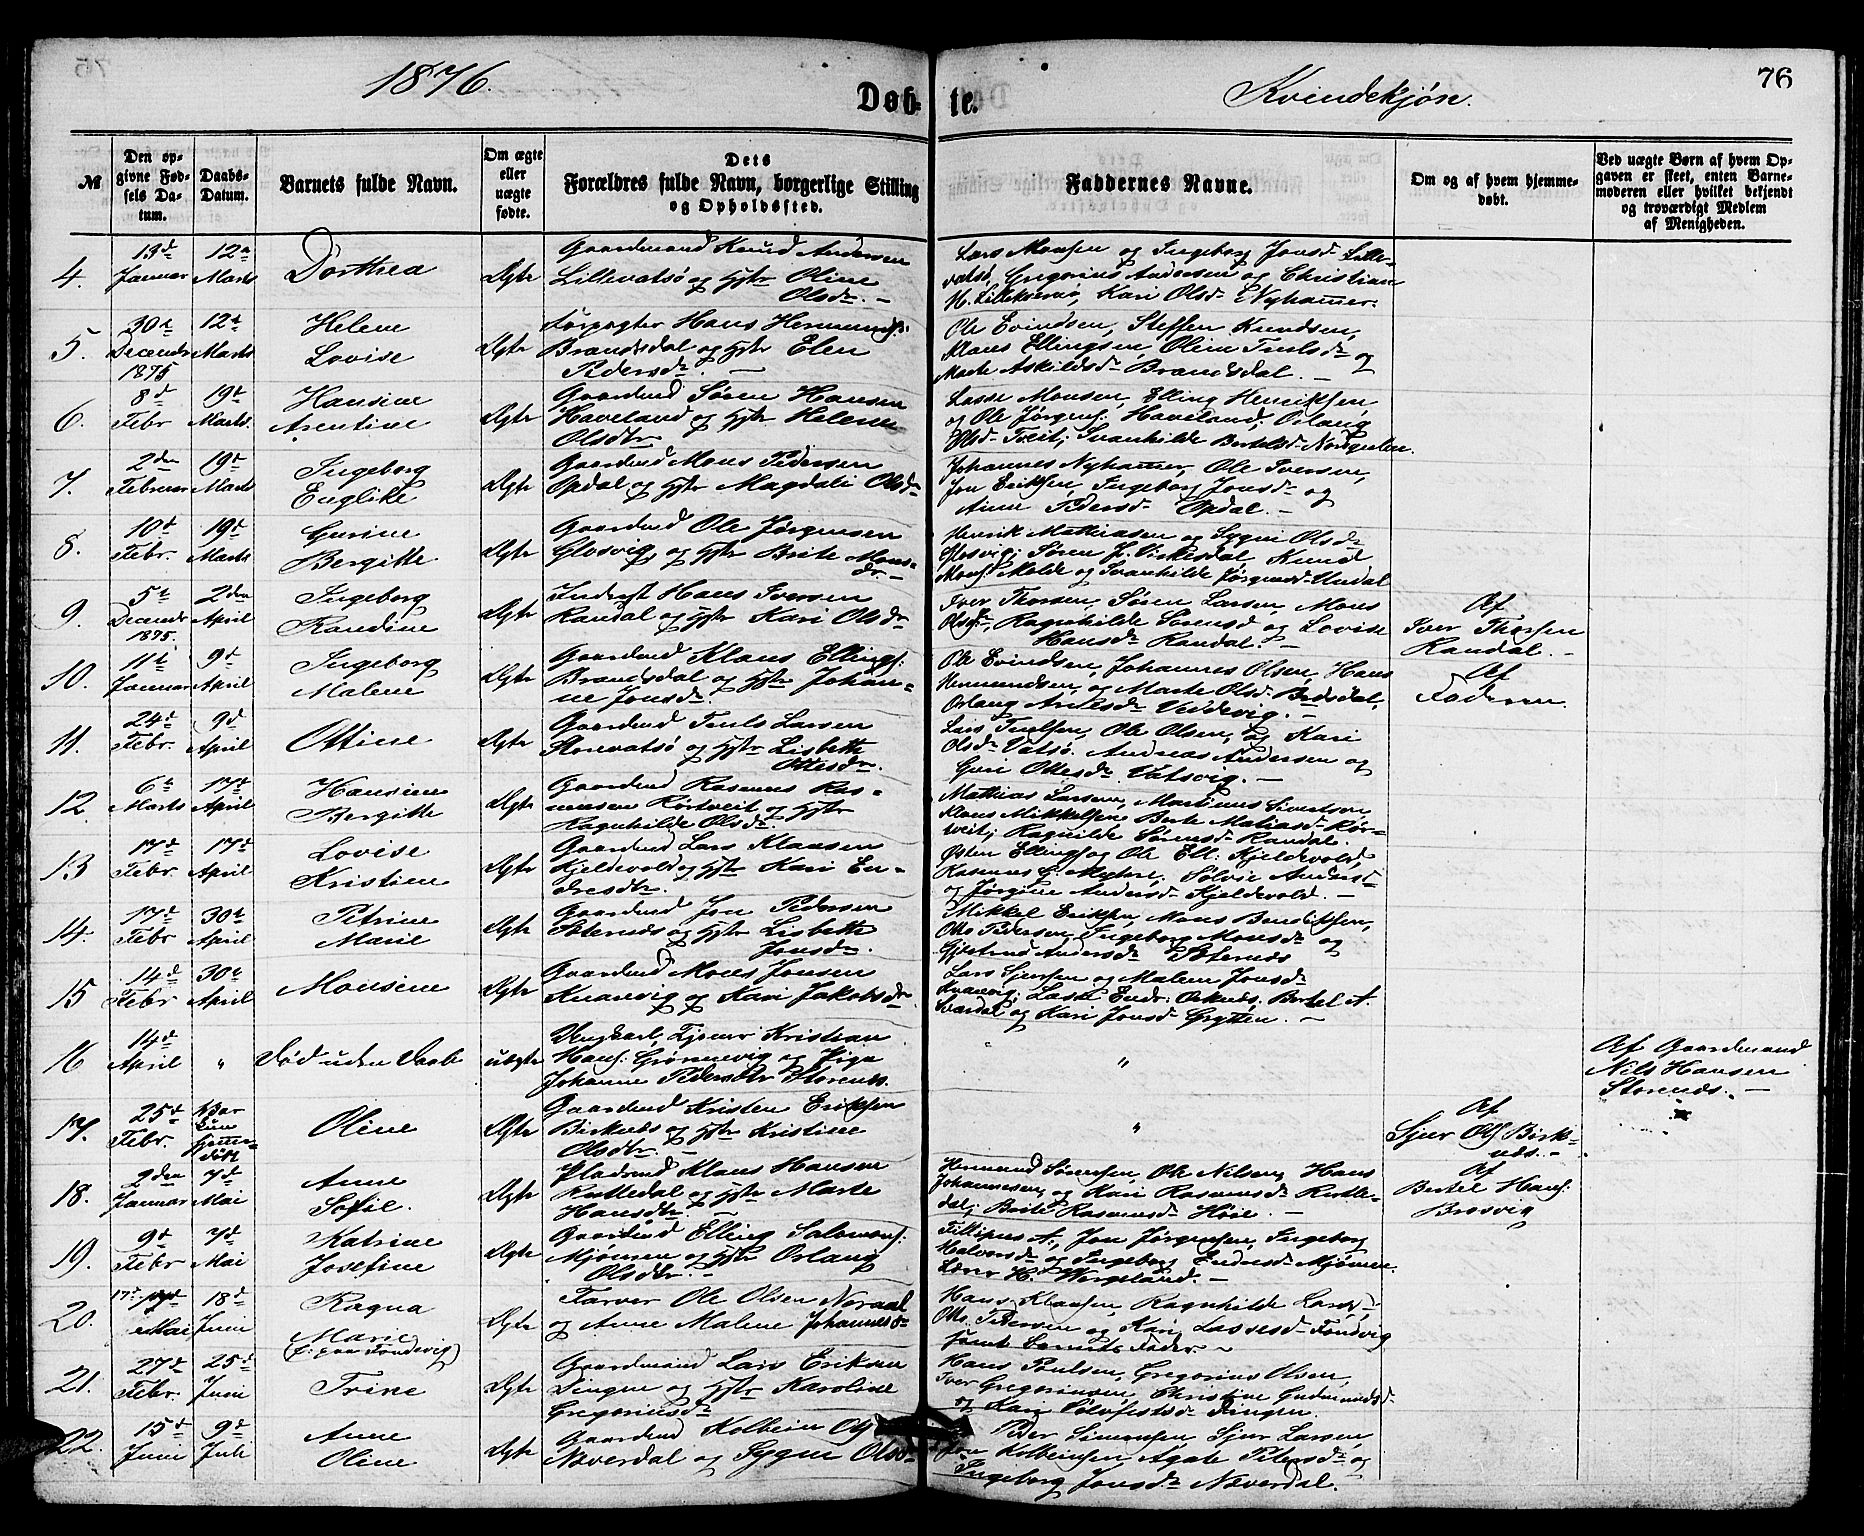 1876.
Døb-
te.
Kvindekjøn.
76
№
Den op-
givne Fød-
sels Da-
tum.
Daabs-
Datum.
Barnets fulde Navn.
Om ægte
eller
uægte
fødte.
Dets
Forældres fulde Navn, borgerlige Stilling
og Opholdssted.
Faddernes Navne.
Om og af hvem hjemme-
døbt.
Ved uægte Børn af hvem Op-
gaven er skeet, enten Barne-
moderen eller hvilket bekjendt
og troværdigt Medlem
af Menigheden.
4.
13d
Januar
12te
Marts
Dorthea
Ægte
Gaardmand Knud Andersen
Lillevatsø og Hstr Oline
Olsdr. —
Lars Monsen og Ingeborg Jonsd Lille-
vatsø, Gregorius Andersen og Christian
H. Kari Olsd. Nyhamer.
5.
30te
Decembr
1875
12te
Marts
Helene
Lovise
Ægte
Forpagter Hans Hermunds:
Brandsdal og Hstr Elen
Pedersdr. —
Ole Evindsen, Steffen Knudsen,
Klaus Ellingsen, Oline Trulsdr og
Marte Askildsd Brandsdal. —
6.
8d
Febr
19de
Marts
Hansine
Arentine
Ægte
Gaardmd Søren Hansen
Haveland og Hstr Helene
Olsdtr
Lasse Monsen, Elling Henriksen
og Ole Jørgens. Haveland; Orlaug
Olsd Tveit; Svanhilde Bertelsd Nordgulen.
7.
2den
Februar
19de
Marts
Ingeborg
Englike
Ægte
Gaardmd Mons Pedersen
Opdal og Hstr Magdali Olsdr
Johannes Nyhamer, Ole Iversen,
Jon Eriksen, Ingeborg Jonsdr og
Anne Pedersd Opdal. —
8.
10d
Febr.
19de
Marts
Gurine
Bergitte
Ægte
Gaardmd Ole Jørgensen
Glosvig og Hstr Brite Mons-
dr. —
Henrik Mathiasen og Sygni Olsdr
Glosvig; Søren J. Virkesdal Knud
Mons. Molde og Svanhilde Jørgensd Undal
9.
5te
Decembr
1875.
2den
April
Ingeborg
Randine
Ægte
Inderst Hans Iversen
Randal og Hstr Kari Olsdr
Iver Thorsen, Søren Larsen, Mons
Olsen, Ragnhilde Sørensd og Lovise
Hansdr Randal. —
Af
Iver Thorsen
Randal. —
10.
11te
Januar
9de
April
Ingeborg
Malene
Ægte
Gaardmd Klaus Ellings:
Brandsdal og Hstr Johan-
ne Jonsdr.
Ole Evindsen, Johannes Olsen, Hans
Hermundsen og Marte Olsd.
Orlaug Veddevig. —
Af
Faderen.
11.
24d
Febr.
9d
April
Ottine
Ægte
Gaardmd Truls Larsen
Storevatsø og Hstr Lisbette
Ottesdr.
Lars Trulsen, Ole Olsen, og Kari
Olsdr Vatsø. Andreas Andersen og
Guri Ottesdr Vatsvig. —
12.
6te
Marts
17de
April
Hansine
Bergitte
Ægte
Gaardmd Rasmus Ras-
musen Rørtveit og Hstr
Ragnhilde Olsdr
Mathias Larsen, Martinus Sivertsen,
Klaus Mikkelsen Berte Matiasd Rør-
tveit; Ragnilde Sørensd Randal.
13
17de
Febr.
17de
April
Lovise
Kristine
Ægte
Gaardmd Lars Klausen
Kjeldevold og Hstr Kari En-
dresdtr.
Østen Ellings og Ole Ell: Kjeldevold,
Rasmus Sølvie Andersd
og Jørgine Andersd Kjeldevold. —
14.
17de
Febr
30te
April
Petrine
Marie
Ægte
Gaardmd Jon Pedersen
Stenes og Hstr Lisbette
Jonsdr.
Mikkel Eriksen, Mons Bendiksen,
Otto Pedersen, Ingeborg Monsdr og
Gjertrud Andersd
15
14d
Febr
30te
April
Monsine
Ægte
Gaardmd Mons Jonsen
Kvanvig og Kari Jakobsdr
Lars Sjursen og Malene Jonsd
Kvanvig; Lasse Endr: Bertel A.
Svardal og Kari Jonsd Grytten. —
16
14d
April
"
Død uden Daab
uægte
Ungkarl, Tjener Kristian
Hans: Grønnevig og Pige
Johanne Pedersdtr Storenes.
"
Af Gaardmand
Nils Hansen
Storenes. —
17.
25d
Febr.
Bar
kun
hjemme-
døbt
Oline
Ægte
Gaardmd Kristen Eriksen
Birknes og Hstr Kristine
Olsdtr. —
"
Af
Sjur Ols Birk-
nes. —
18.
2den
Januar
7d
Mai
Anne
Sofie.
Ægte
Pladsmd Klaus Hansen
Rutledal og Hstr Marte
Hansdtr. —
Hermund Sørensen, Ole Nilsen, Hans
Johannesen og Kari Rasmusd Rutle-
dal; Brite Rasmusd Høie. —
Af
Bertel Hans:
Brosvig
19.
9d
Febr
7d
Mai
Katrine
Josefine
Ægte
Gaardmd Elling Salomons:
Mjømen og Hstr Orlaug
Olsdtr. —
Fillipus A., Jon Jørgensen, Ingeborg
Halvorsd og Ingeborg Endresd Mjømen.
Lærer H. Wergeland. —
20.
17d
Mai
18d
Juni
Ragna
Marie
(f: paa Fondevig)
Ægte
Farver Ole Olsen Noraal
og Anne Malene Johannesdr
Hans Klausen, Ragnhilde Larsd
Otto Pedersen og Kari Lassesd Fondvig
samt Barnets Fader —
21.
27de
Febr.
25d
Juni
Trine
Ægte
Gaardmand Lars Eriksen
Dingen og Hstr Karoline
Gregoriusdr
Hans Poulsen, Gregorius Olsen,
Iver Gregoriusen, Christine Gudmundsd
og Kari Dingen.
22.
15d
Juni
9de
Juli
Anne
Oline
Ægte
Gaardmd Kolbein Ols
Nøverdal og Sygni Olsd
Peder Simonsen Sjur Larsen,
Jon Kolbeinsen Agate Petersdr og
Ingeborg Jonsdr Nøverdal.